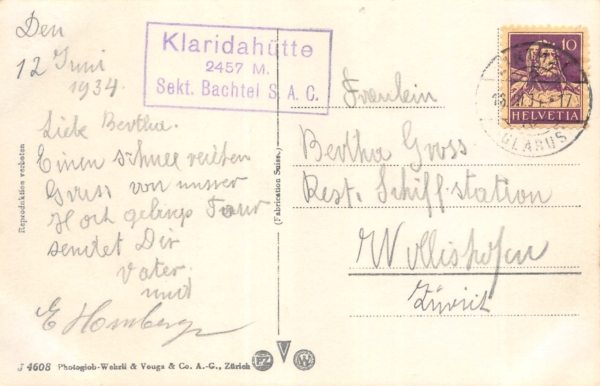 Den
12 Juni
1934.
Klaridahütte
2457 M.
Sekt. Bachtel S. A. C.
Liebe Bertha.
Einen schnee reichen
Gruss von unser
Hoch gebirgs Tour
sendet Dir
Vater
und
E Homberger
Reproduktion verboten
(Fabrication Suisse.)
10
HELVETIA
GLARUS
Fräulein
Bertha Gross
Rest. Schiffstation
Wollishofen
Zürich
J 4608 Photoglob-Wehrli & Vouga & Co. A.-G., Zürich
PZ
W